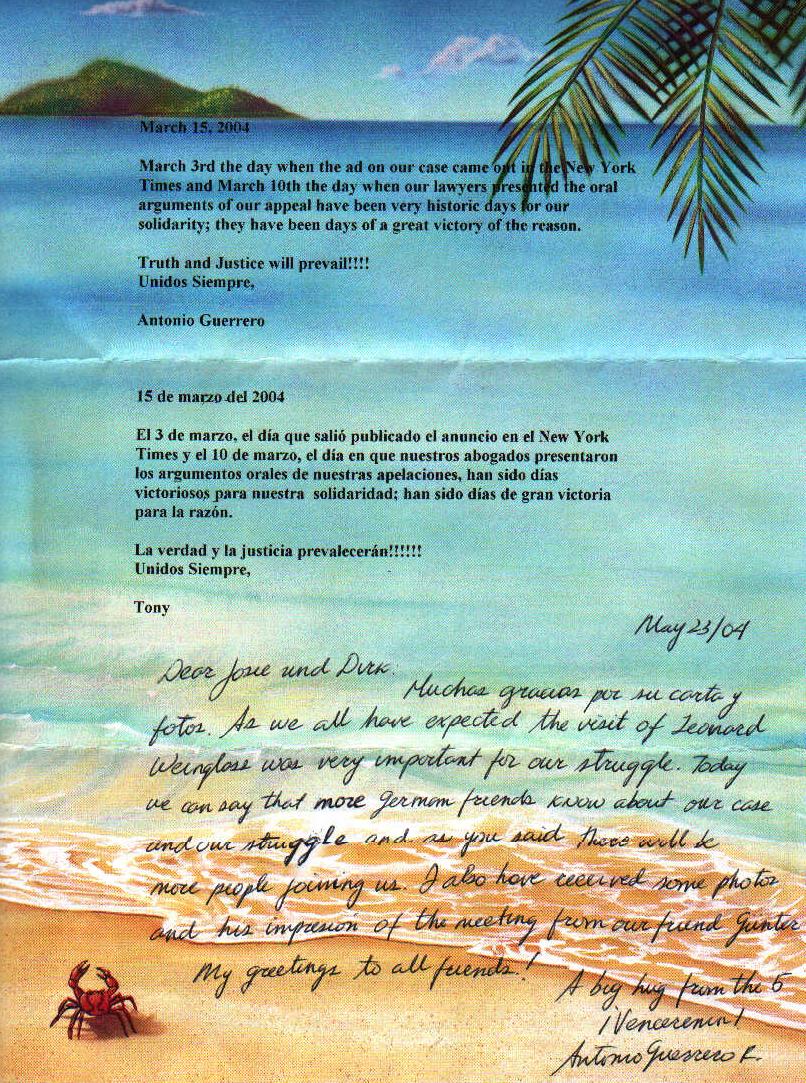 March 15, 2004
March 3rd the day when the ad on our case came out in the New York
Times and March 10th the day when our lawyers presented the oral
arguments of our appeal have been very historic days for our
solidarity; they have been days of a great victory of the reason.
Truth and Justice will prevail!!!!
Unidos Siempre,
Antonio Guerrero
15 de marzo del 2004
El 3 de marzo, el día que salió publicado el anuncio en el New York
Times y el 10 de marzo, el día en que nuestros abogados presentaron
los argumentos orales de nuestras apelaciones, han sido días
victoriosos para nuestra solidaridad; han sido días de gran victoria
para la razón.
La verdad y la justicia prevalecerán!!!!!!
Unidos Siempre,
Tony
May 23/04
Dear Josie und Dirk.
Muchas gracias por su carta y
fotos. As we all have expected the visit of Leonard
Weinglass was very important for our struggle. Today
we can say that more German friends know about our case
and our struggle and as you said there will be
more people joining us. I also have received some photos
and his impresion of the meeting from our friend Günter
My greetings to all friends!
A big hug from the 5
¡Venceremos!
Antonio Guerrero R.